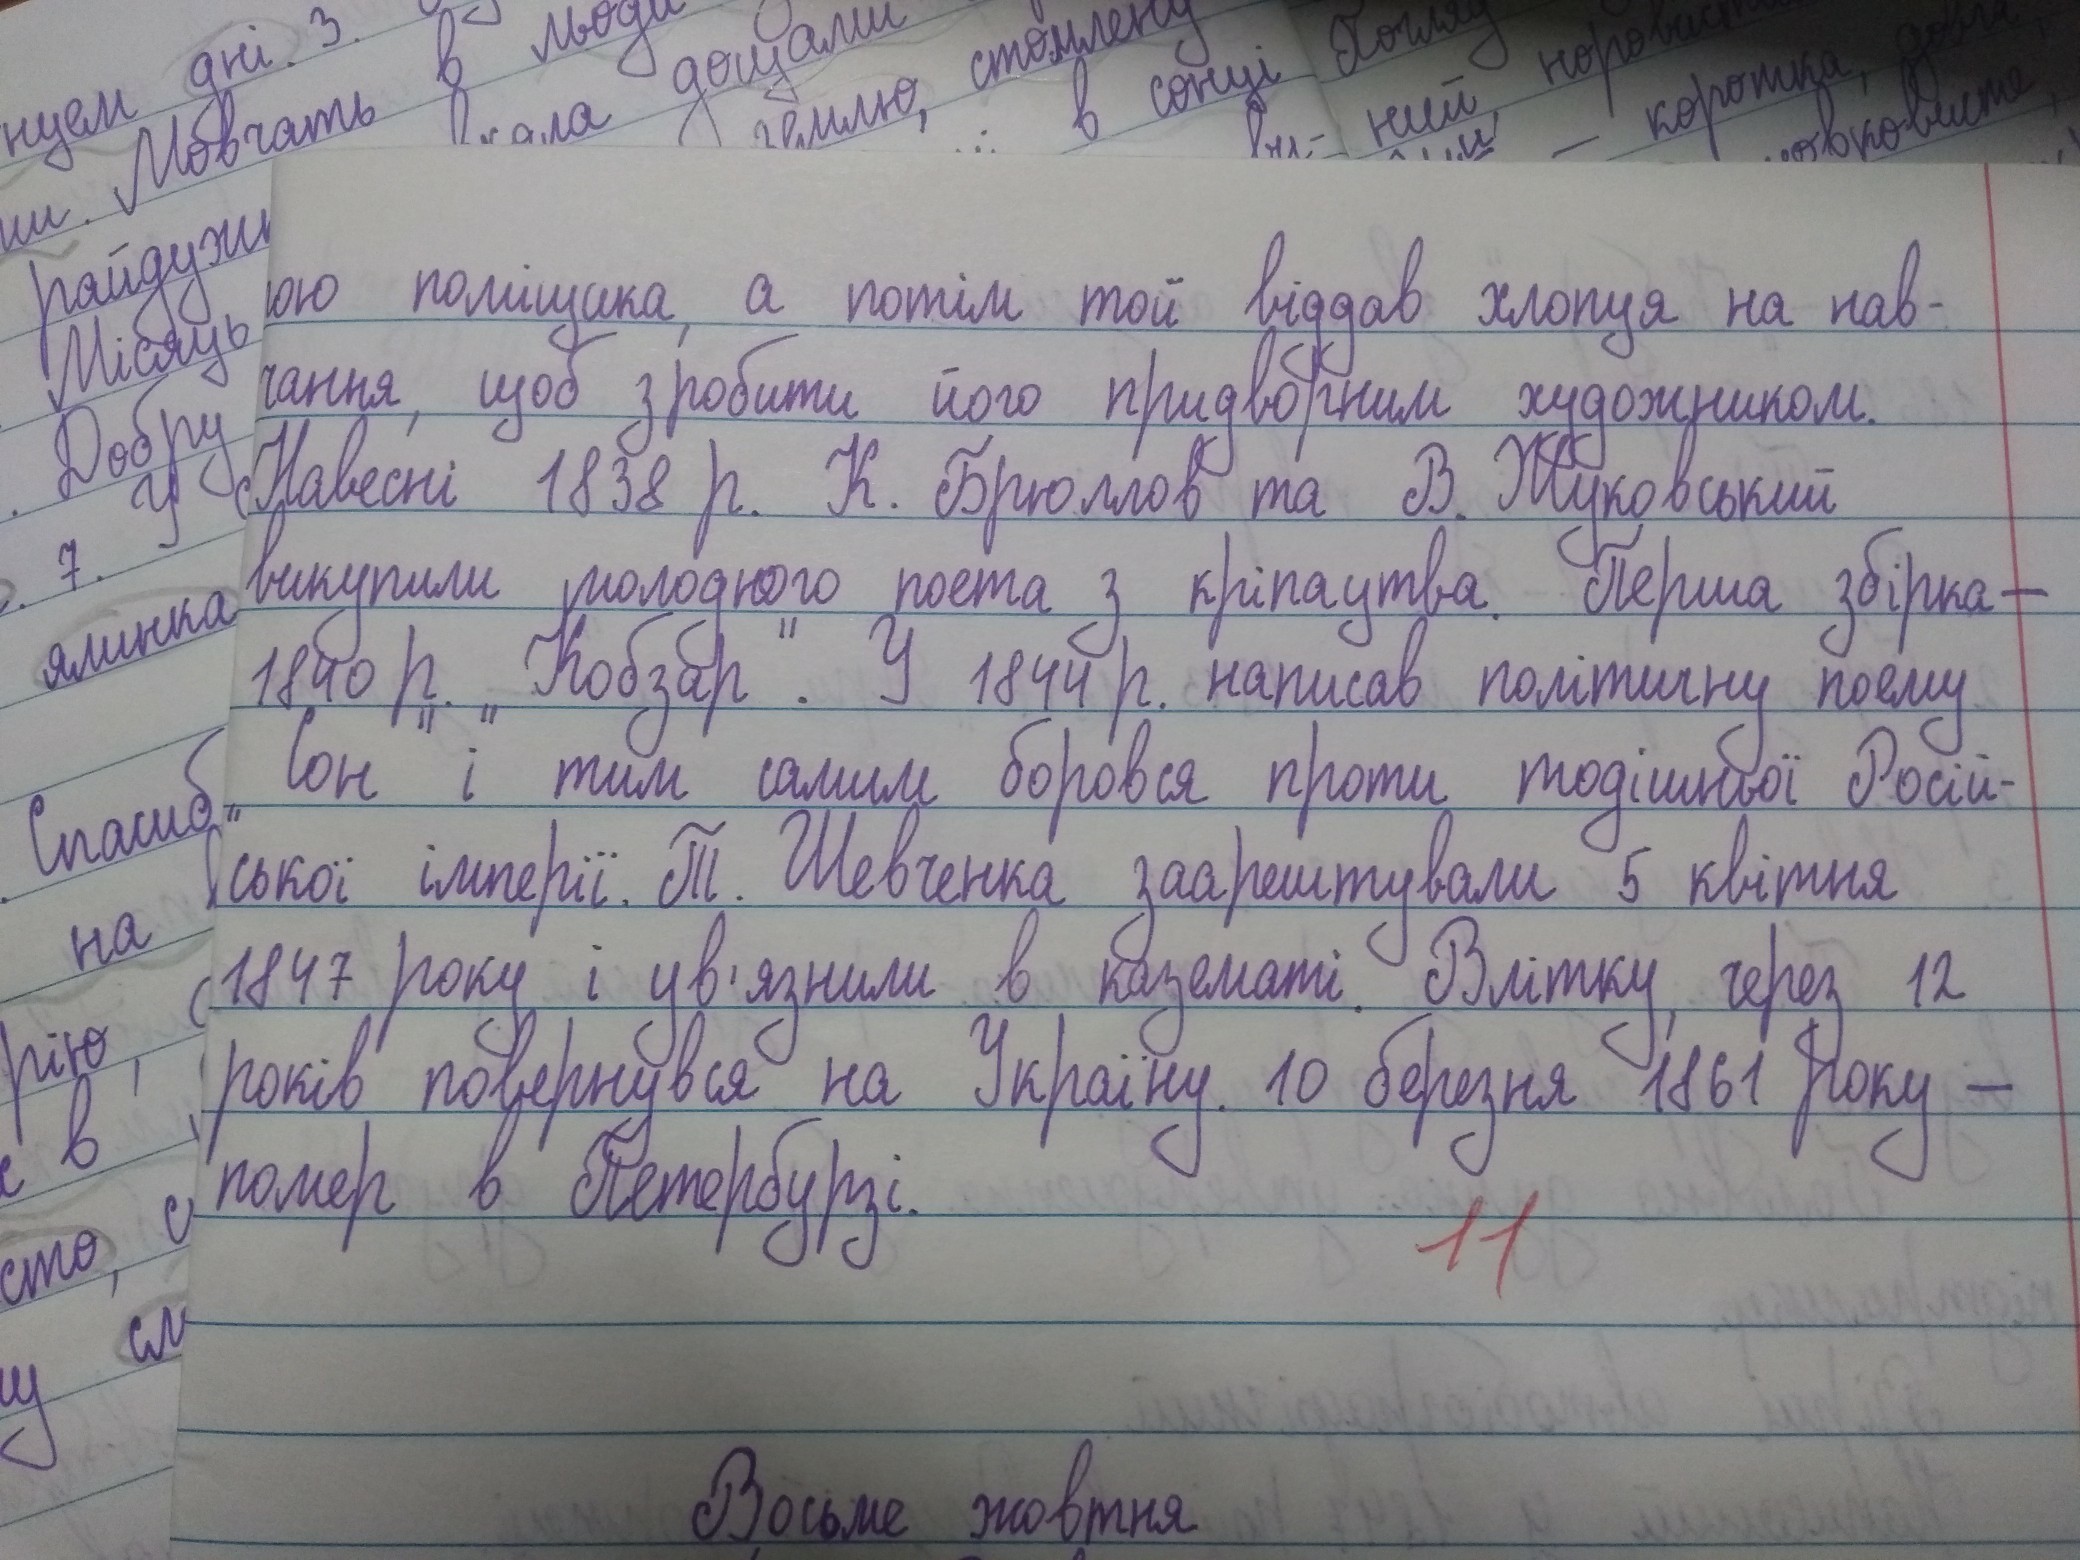 нцем дні. 3.
Мовчать в
дощами
землю, стомлену
в сонці
Погляд
ний, норовистий
— коротка, довга,
райдужн
Місяць
Добру
У
7.
ялинка
Спасиб
на
рію,
в
сто,
ою поміщика, а потім той віддав хлопця на нав-
чання, щоб зробити його придворним художником.
Навесні 1838 р. К. Брюллов та В. Жуковський
викупили молодного поета з кріпацтва. Перша збірка —
1840 р. „Кобзар". У 1844 р. написав політичну поему
„Сон" і тим самим боровся проти тодішньої Росій-
ської імперії. Т. Шевченка заарештували 5 квітня
1847 року і ув'язнили в казематі. Влітку, через 12
років повернувся на Україну. 10 березня 1861 року —
помер в Петербурзі.
11
Восьме жовтня